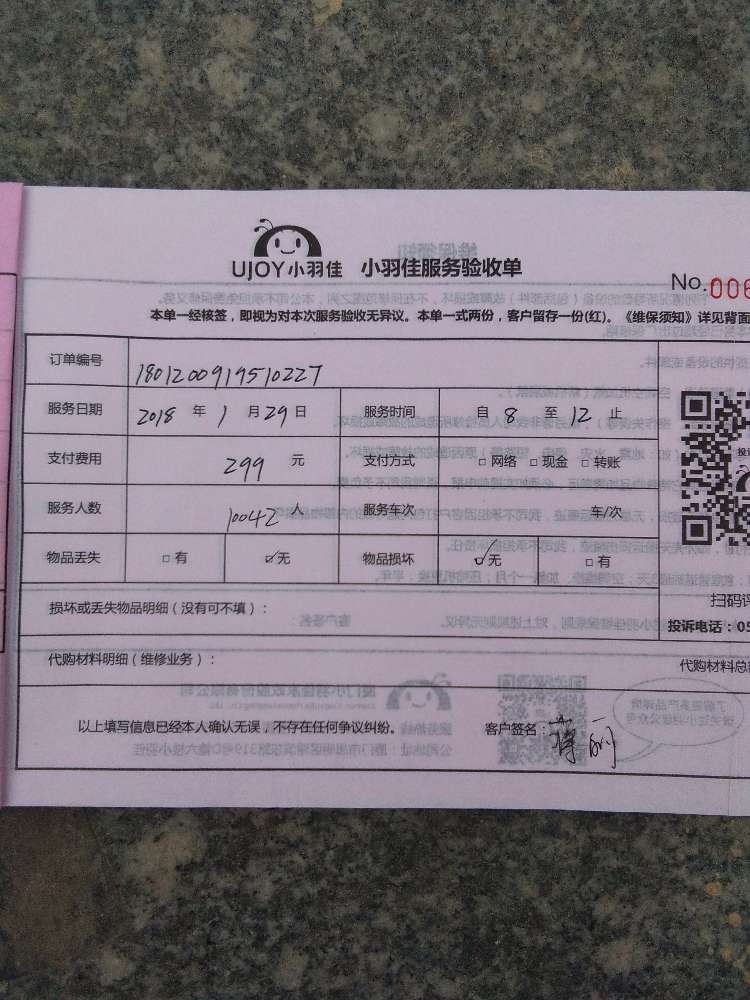 UJOY小羽佳 小羽佳服务验收单
No.006
本单一经核签，即视为对本次服务验收无异议。本单一式两份，客户留存一份(红)。《维保须知》详见背面
订单编号 1801200919510227
服务日期 2018 年 1 月 29 日 服务时间 自 8 至 12 止
支付费用 299 元 支付方式 □网络 □现金 □转账
服务人数 10042 人 服务车次 车/次
物品丢失 □有 ☑无 物品损坏 ☑无 □有
扫码评
损坏或丢失物品明细（没有可不填）：
投诉电话：05
代购材料明细（维修业务）： 代购材料总
以上填写信息已经本人确认无误，不存在任何争议纠纷。 客户签名：